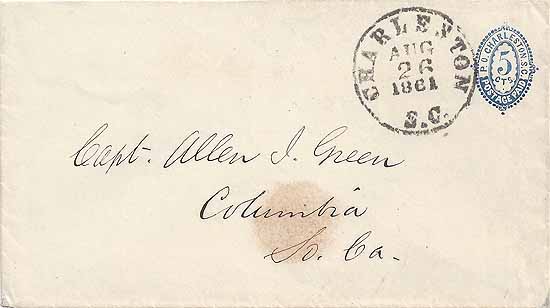 CHARLESTON
AUG
26
1861
S.C.
P.O. CHARLESTON. S.C.
5
CTS.
POSTAGE PAID
Capt. Allen J. Green
Columbia
So. Ca.